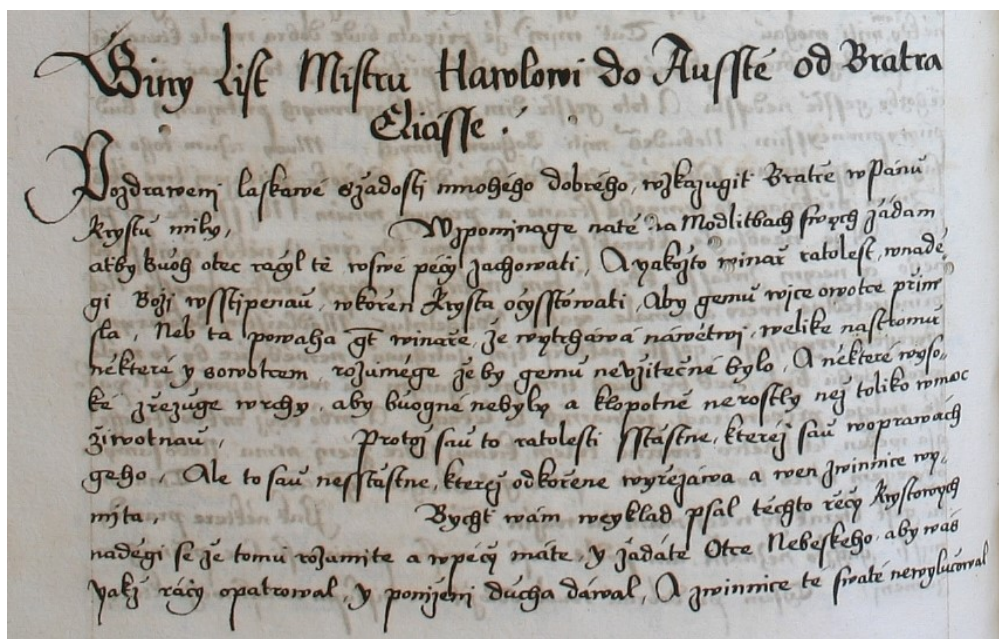 Giny List Mistru Hawlowi do Aussté od Bratra
Eliásse .
Pozdrawenj laskawé s žádostj mnohého dobrého, wzkazugit Bratře w Pánu
Krystu milý, Wzpominage na tě na Modlitbach swých žádam
atby buoh otec ráčyl tě w swé péčy zachowati, A yakožto winař ratolest, w nadě-
gi Božj wsstipenau, w kořen Krysta očysstowati, Aby gemu wjce owotce přine
sla, Neb ta powaha gt winaře, že wytrháwá náwětwj, weliké na stromu
některé y s owotcem rozuměge žeby gemu neužitečné bylo, A některé wyso-
ké zřezuge wrchy, aby buogné nebyly a klopotně nerostly než toliko w moc
žiwotnau, Protož sau to ratolesti sstastné, kteréž sau w oprawách
geho, Ale to sau nesstastné, kteréž od kořene wyřezáwa a wen z winnice wy-
mjta Bycht wám weyklad psal těchto řečy Krystowych
naděgi se že tomu rozumite a w péčy máte, y žádáte Otce Nebeského, aby wás
yakž ráčy opatrowal, y pomženj ducha dáwal, A z winnice té swaté newylučowal